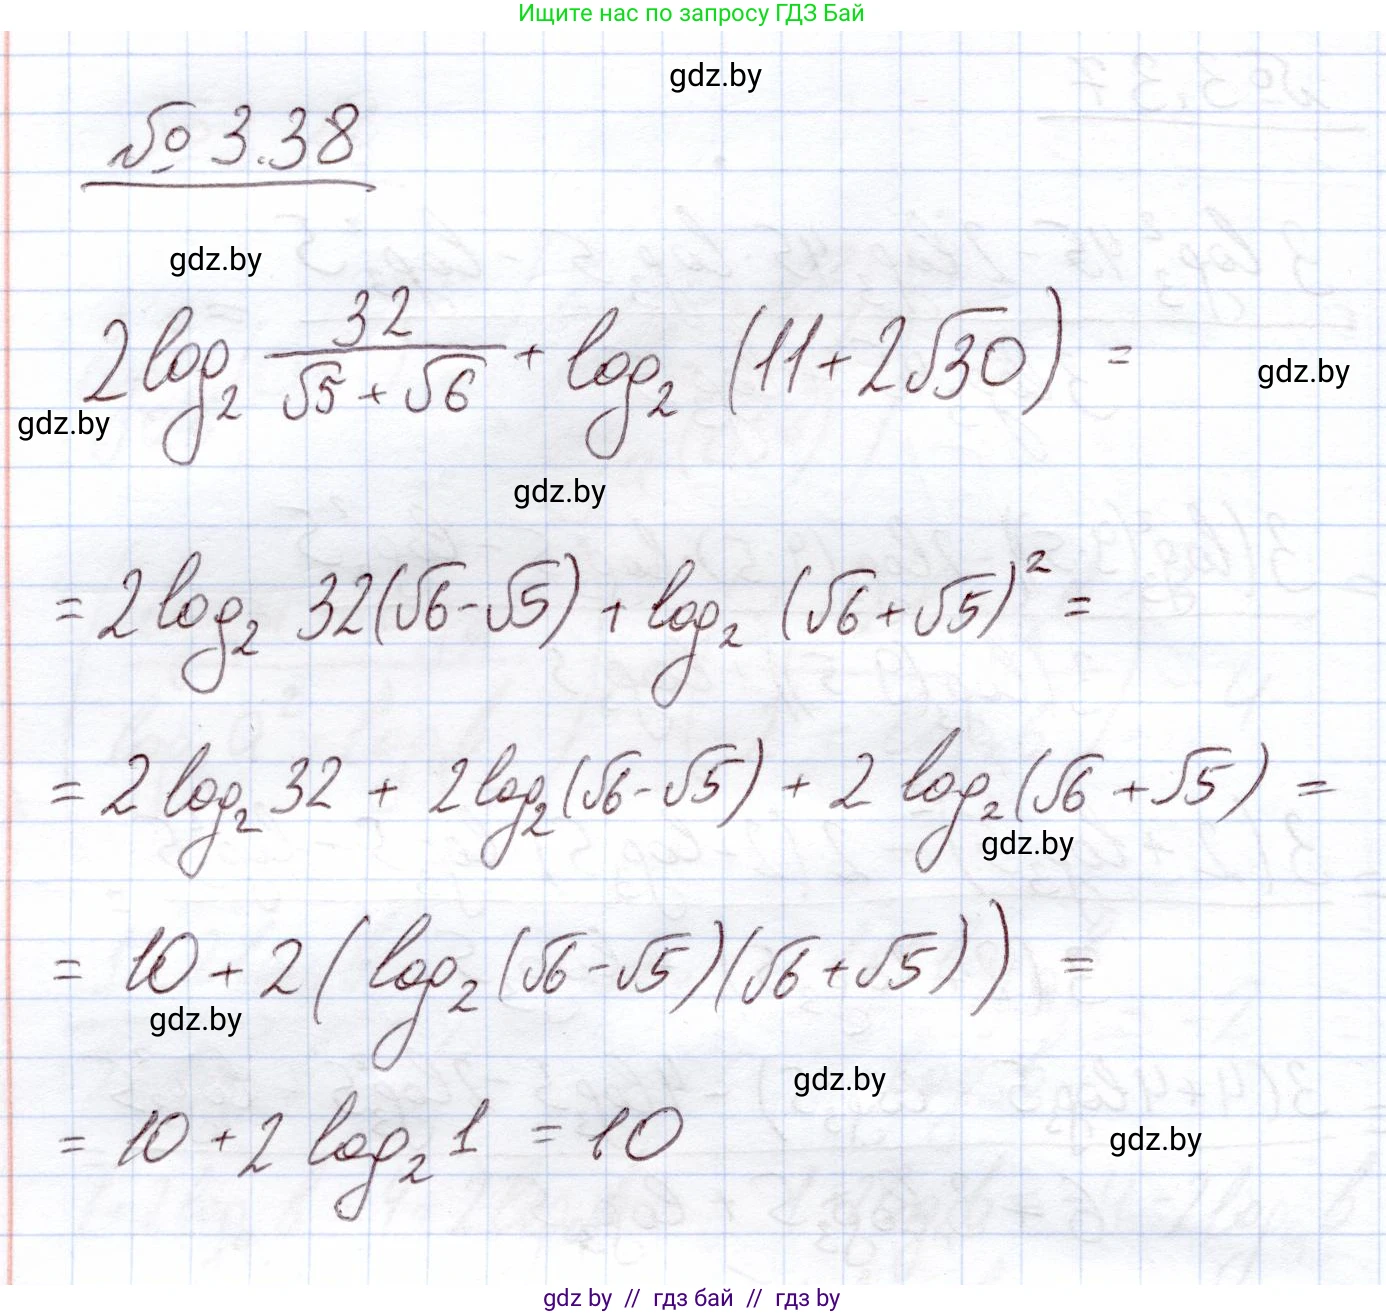 Ищите нас по запросу ГДЗ Бай
gdz.by
№ 3.38
gdz.by
2 log₂ 32/(√5 + √6) + log₂ (11 + 2√30) =
gdz.by
gdz.by
gdz.by
= 2 log₂ 32(√6 - √5) + log₂ (√6 + √5)² =
= 2 log₂ 32 + 2 log₂ (√6 - √5) + 2 log₂ (√6 + √5) =
gdz.by
= 10 + 2 ( log₂ (√6 - √5)(√6 + √5) ) =
gdz.by
gdz.by
= 10 + 2 log₂ 1 = 10
gdz.by
gdz by // гдз бай // гдз by